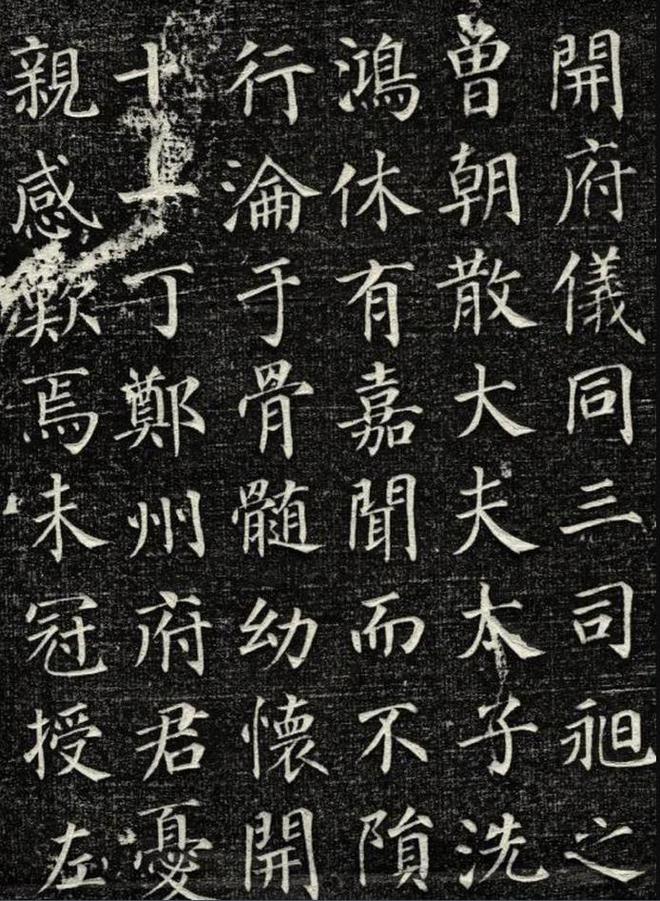 開府儀同三司昶之
曽朝散大夫太子洗
鴻休有嘉聞而不隕
行淪于骨髓幼懷開
十一丁鄭州府君憂
親感歎焉未冠授左